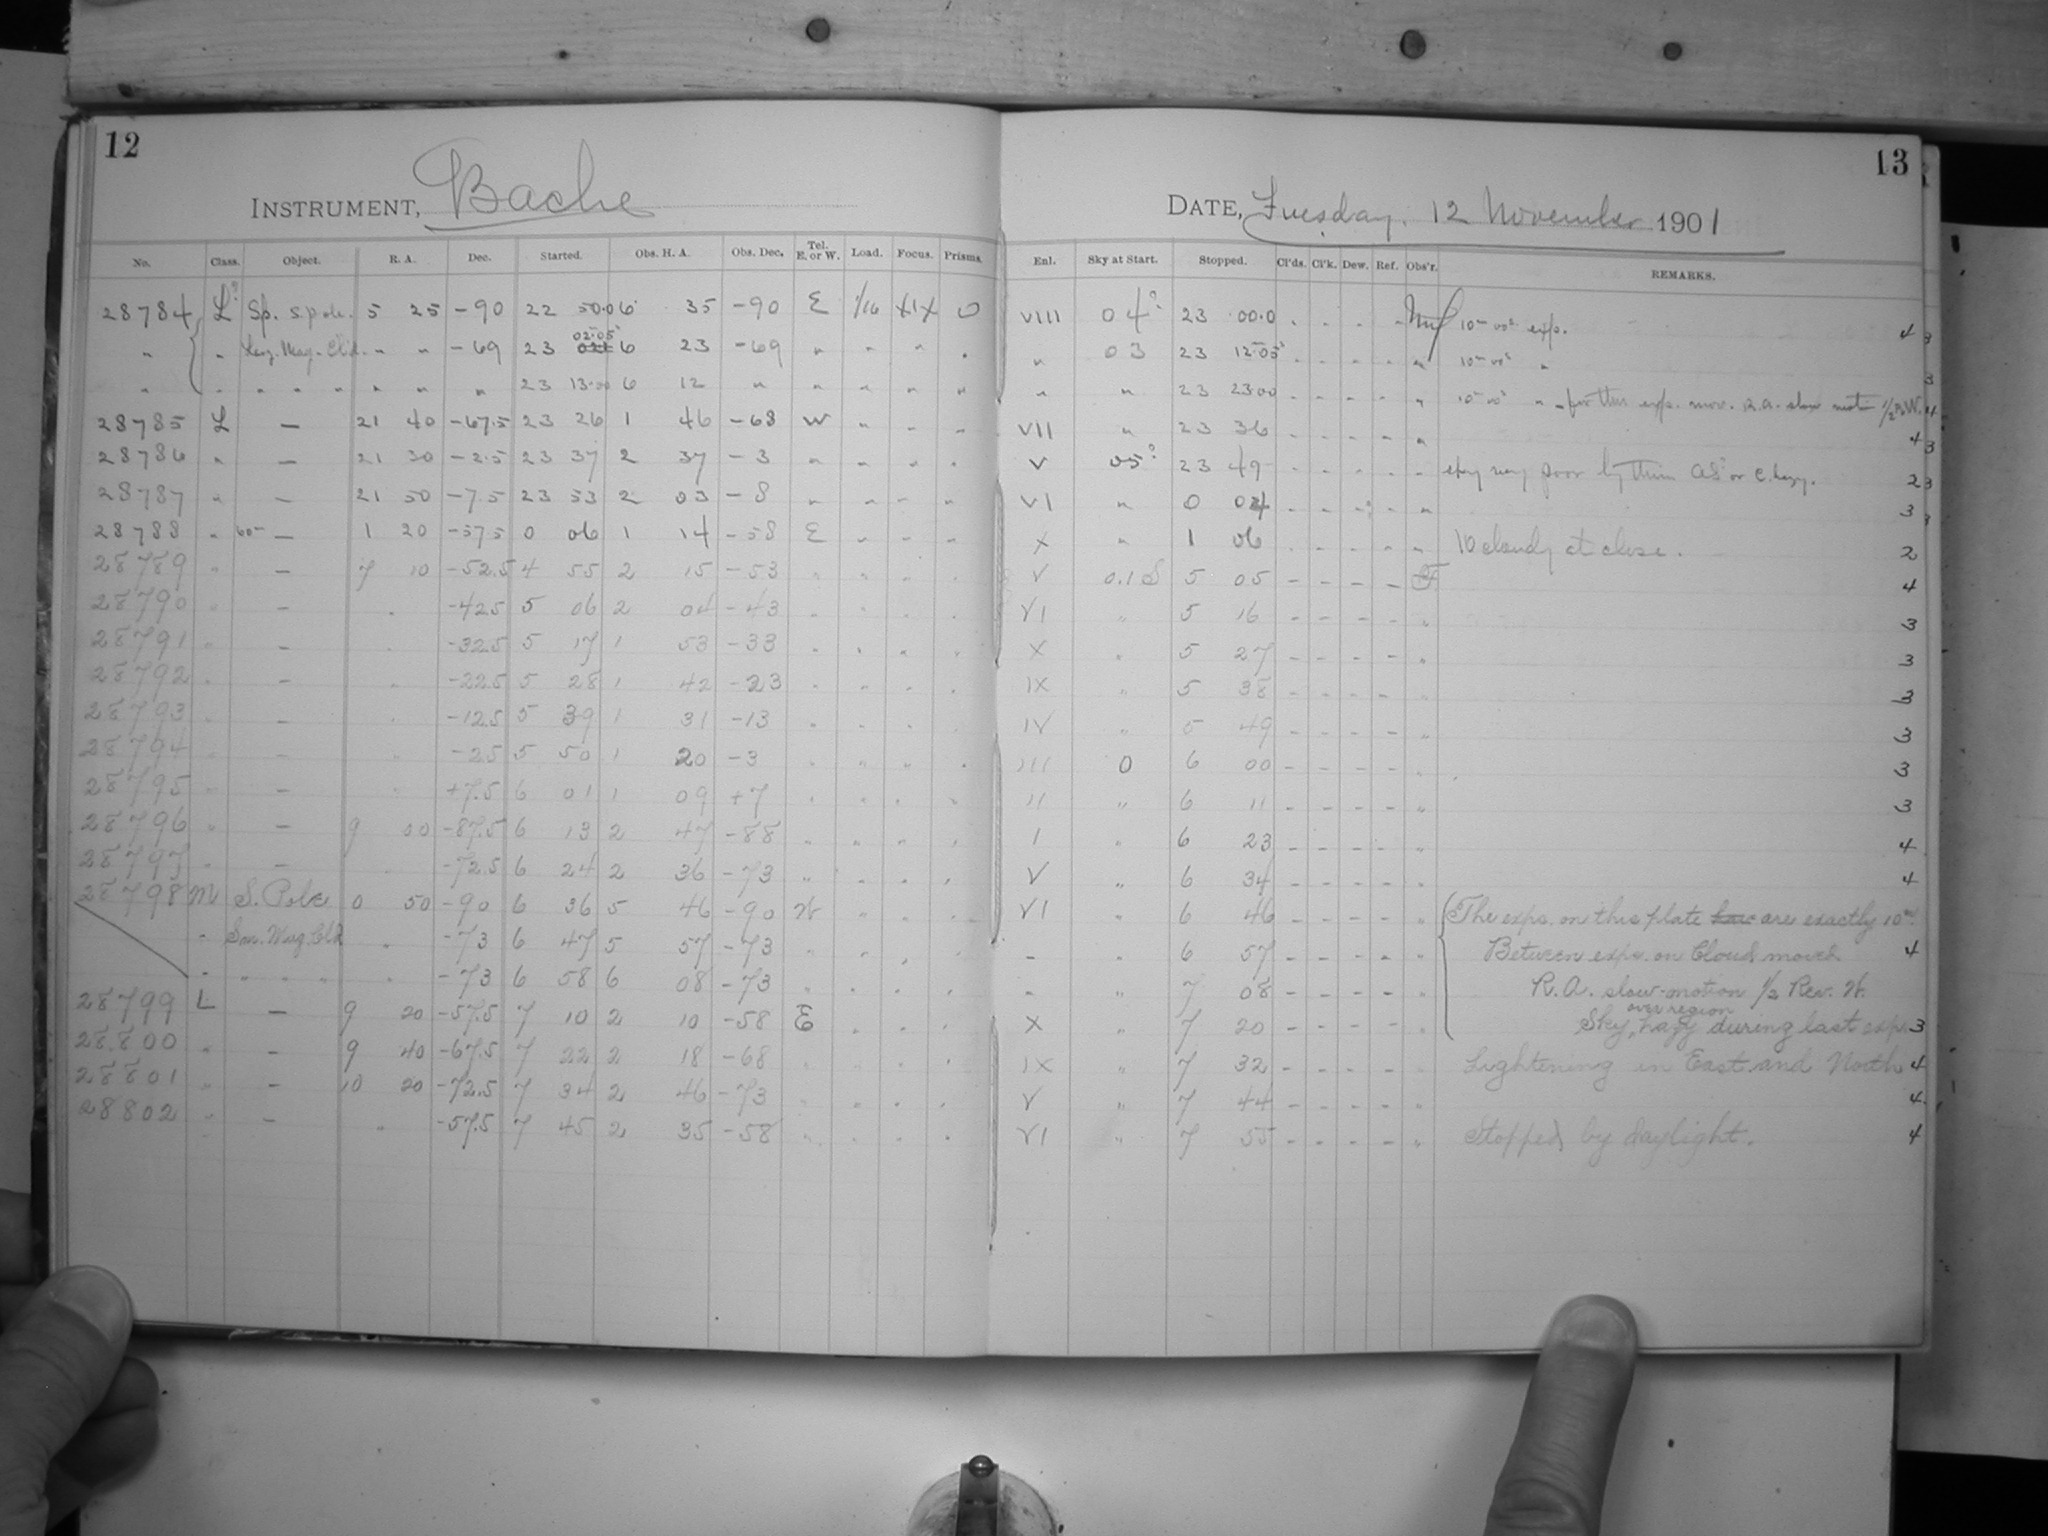 12
INSTRUMENT, Bache
No. Class. Object. R. A. Dec. Started. Obs. H. A. Obs. Dec. Tel. E. or W. Load. Focus. Prisms.
28784 L Sp. S. pole. 5 25 -90 22 50.0 6 35 -90 E 1/16 XIX 0
" " Mag. Cl'd. " " -69 23 02.05 6 23 -69 " " " "
" " " " " " " " " 23 13.00 6 12 " " " " "
28785 L — 21 40 -67.5 23 26 1 46 -68 W " " "
28786 " — 21 30 -2.5 23 37 2 37 -3 " " " "
28787 " — 21 50 -7.5 23 53 2 03 -8 " " " "
28788 " 60m — 1 20 -57.5 0 06 1 14 -58 E " " "
28789 " — 7 10 -52.5 4 55 2 15 -53 " " " "
28790 " — " -42.5 5 06 2 04 -43 " " " "
28791 " — " -32.5 5 17 1 53 -33 " " " "
28792 " — " -22.5 5 28 1 42 -23 " " " "
28793 " — " -12.5 5 39 1 31 -13 " " " "
28794 " — " -2.5 5 50 1 20 -3 " " " "
28795 " — " +7.5 6 01 1 09 +7 " " " "
28796 " — 9 00 -87.5 6 13 2 47 -88 " " " "
28797 " — -72.5 6 24 2 36 -73 " " " "
28798 M S. Pole 0 50 -90 6 36 5 46 -90 W " " "
" Sm. Mag. Cld " -73 6 47 5 57 -73 " " " "
" " " " " -73 6 58 6 08 -73 " " " "
28799 L — 9 20 -57.5 7 10 2 10 -58 E " " "
28800 " — 9 40 -67.5 7 22 2 18 -68 " " " "
28801 " — 10 20 -72.5 7 34 2 46 -73 " " " "
28802 " — " -57.5 7 45 2 35 -58 " " " "
13
DATE, Tuesday, 12 November 1901
Enl. Sky at Start. Stopped. Cl'ds. Cl'k. Dew. Ref. Obs'r. REMARKS.
VIII 04 23 00.0 10m 00s exp. 4
" 03 23 12.05 " 10m 00s " 3
" " 23 23.00 " 10m 00s " - for this exp. mov. R.A. slow motion 1/2 R. W. 4
VII " 23 36 - - - - " 4
V 05 23 49 - - - - - very poor by thin or c. hazy. 2
VI " 0 04 - - - - " 3
X " 1 06 - - - - " 10 cloudy at close. 2
V 0.1 S 5 05 - - - - F 4
VI " 5 16 - - - - " 3
X " 5 27 - - - - " 3
IX " 5 38 - - - - " 3
IV " 5 49 - - - - " 3
III 0 6 00 - - - - " 3
II " 6 11 - - - - " 3
I " 6 23 - - - - " 4
V " 6 34 - - - - " 4
VI " 6 46 - - - - " The exps. on this plate are exactly 10m.
- " 6 57 - - - - " Between exps. on Cloud moved 4
- " 7 08 - - - - " R.A. slow-motion 1/2 Rev. W.
X " 7 20 - - - - " Sky, over region hazy during last exp. 3
IX " 7 32 - - - - " Lightening in East and North 4
V " 7 44 - - - - " 4
VI " 7 55 - - - - " Stopped by daylight. 4